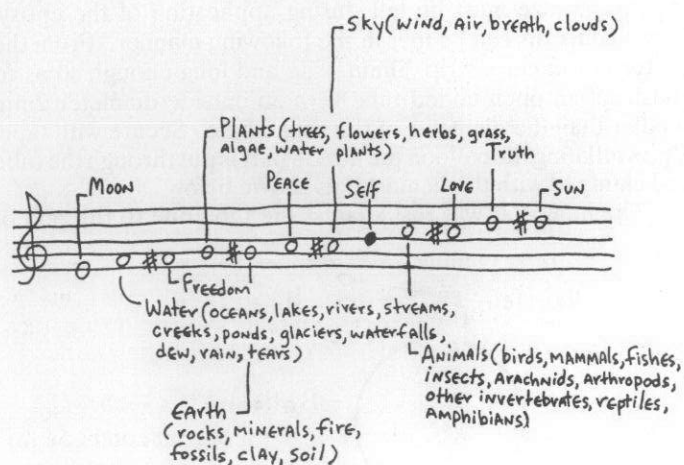 Sky (wind, air, breath, clouds)
Plants (trees, flowers, herbs, grass,
algae, water plants)
Moon
Peace
Self
Love
Truth
Sun
Freedom
Water (oceans, lakes, rivers, streams,
creeks, ponds, glaciers, waterfalls,
dew, rain, tears)
Animals (birds, mammals, fishes,
insects, arachnids, arthropods,
other invertebrates, reptiles,
amphibians)
Earth
(rocks, minerals, fire,
fossils, clay, soil)